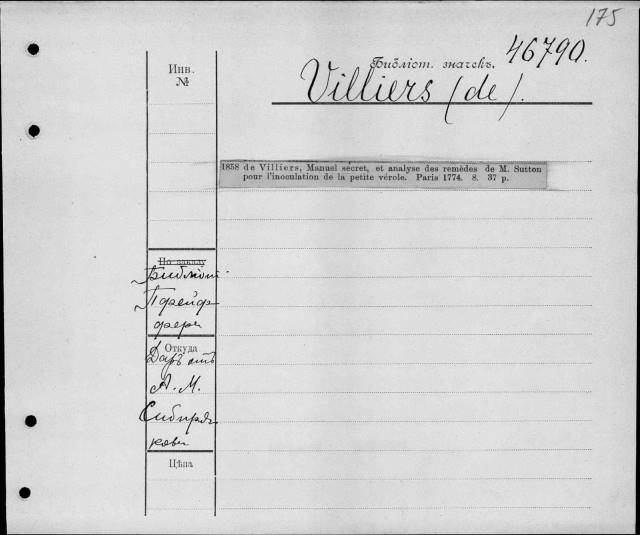 175
Библіот. значекъ. 46790.
Инв. №
Villiers (de).
1858 de Villiers, Manuel secret, et analyse des remèdes de M. Sutton
pour l'inoculation de la petite vérole. Paris 1774. 8. 37 p.
По заказу
Библіот.
Пфейф
фера
Откуда
Даръ отъ
А. М.
Сибиря
кова
Цѣна